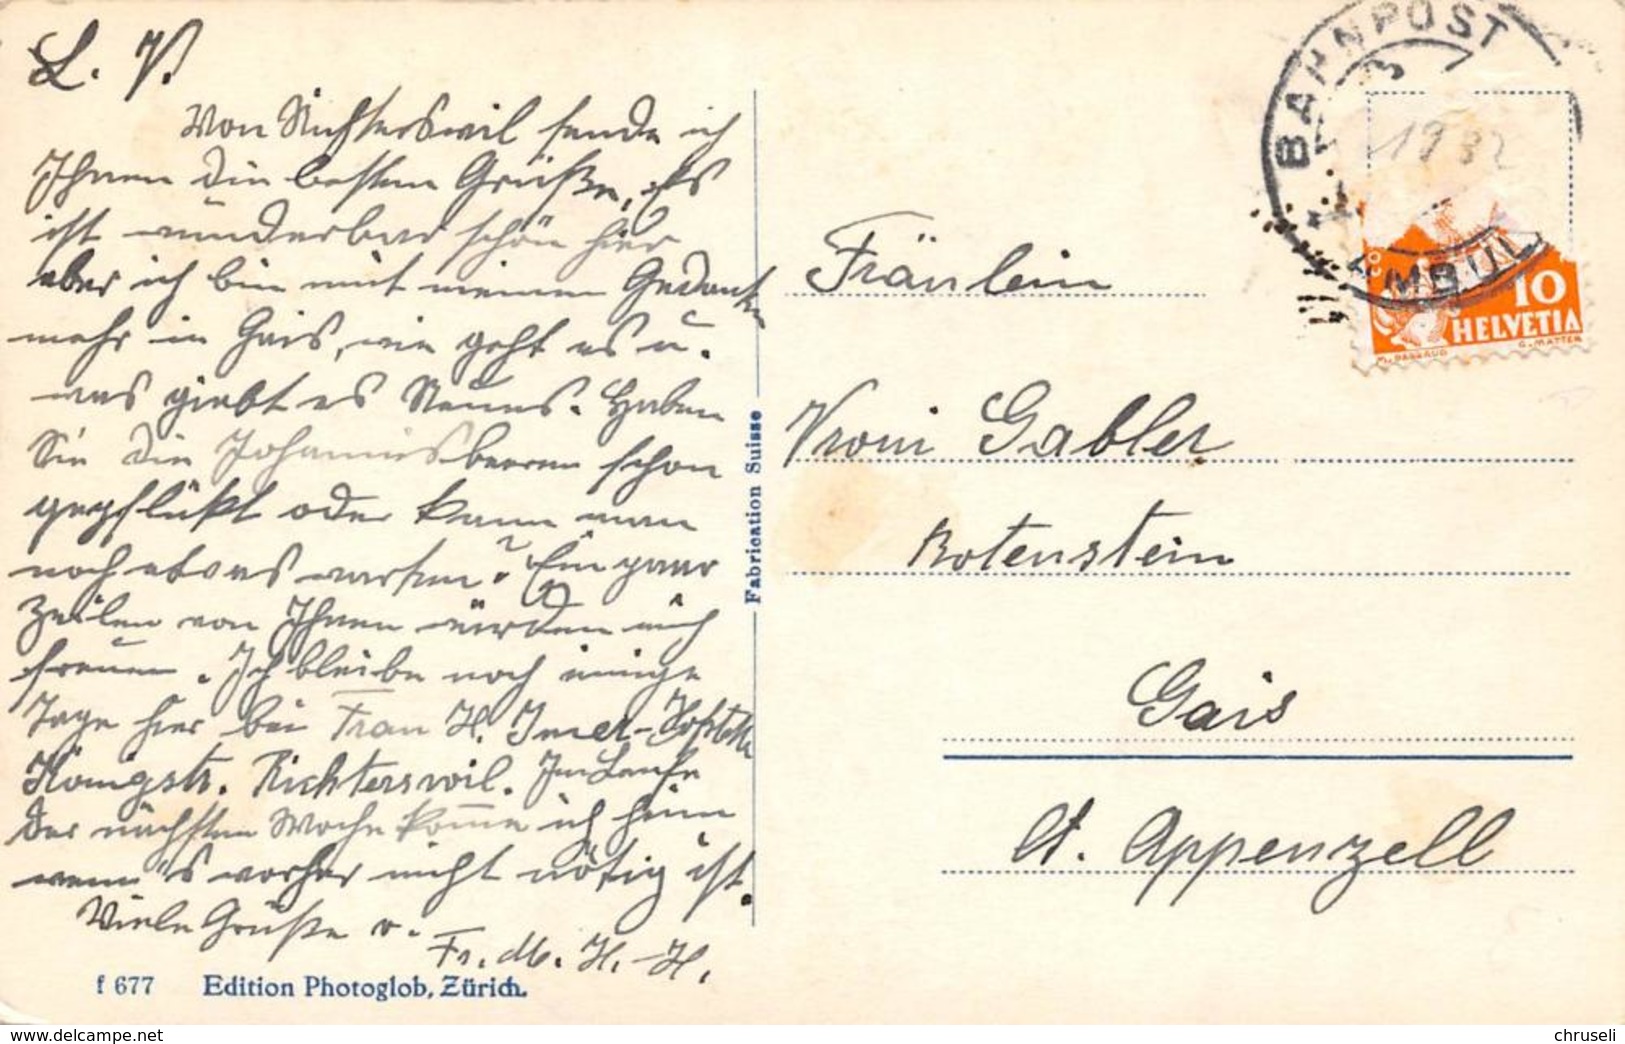 L. V.
Von Richterswil sende ich
Ihnen die besten Grüße, Es
ist wunderbar schön hier
aber ich bin mit meinen Gedanken
mehr in Gais, wie geht es u.
was giebt es Neues. Haben
Sie die Johannisbeeren schon
gepflückt oder kann man
noch etwas warten? Ein paar
Zeilen von Ihnen würden mich
freuen. Ich bleibe noch einige
Tage hier bei Frau H.
Königstr. Richterswil. Im Laufe
der nächsten Woche komme ich heim
wenn's vorher nicht nötig ist.
Viele Grüße v.
Fr. M. H.-H.
f 677 Edition Photoglob, Zürich.
Fabrication Suisse
BAHNPOST
AMBUL
1932
10
HELVETIA
Fräulein
Vroni Gabler
Rotenstein
Gais
Ct. Appenzell
chruseli
www.delcampe.net